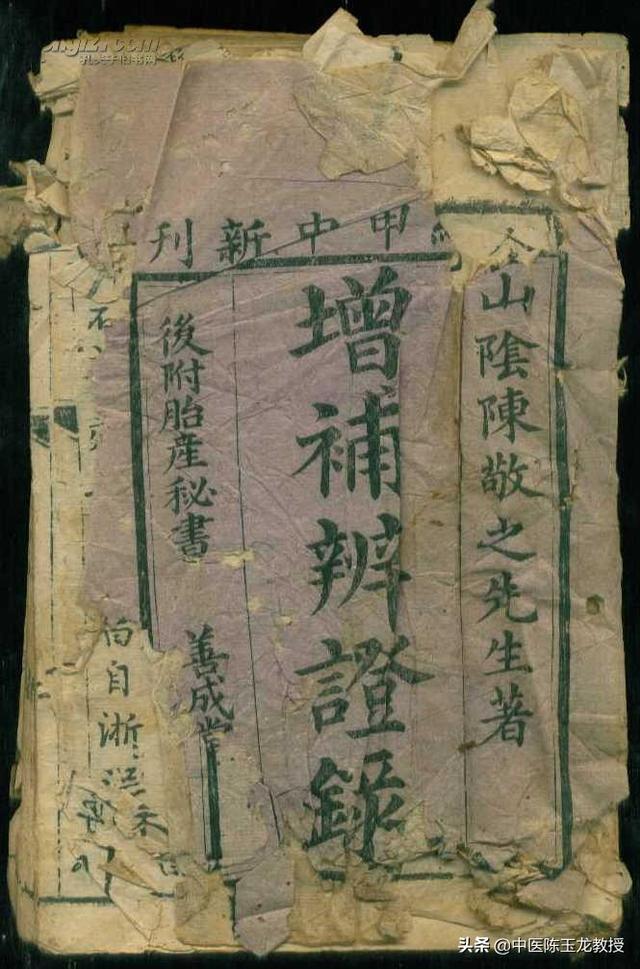 孔夫子旧书网
甲申新刊
山陰陳敬之先生著
增補辨證錄
後附胎産秘書
善成堂
自浙
头条 @中医陈玉龙教授